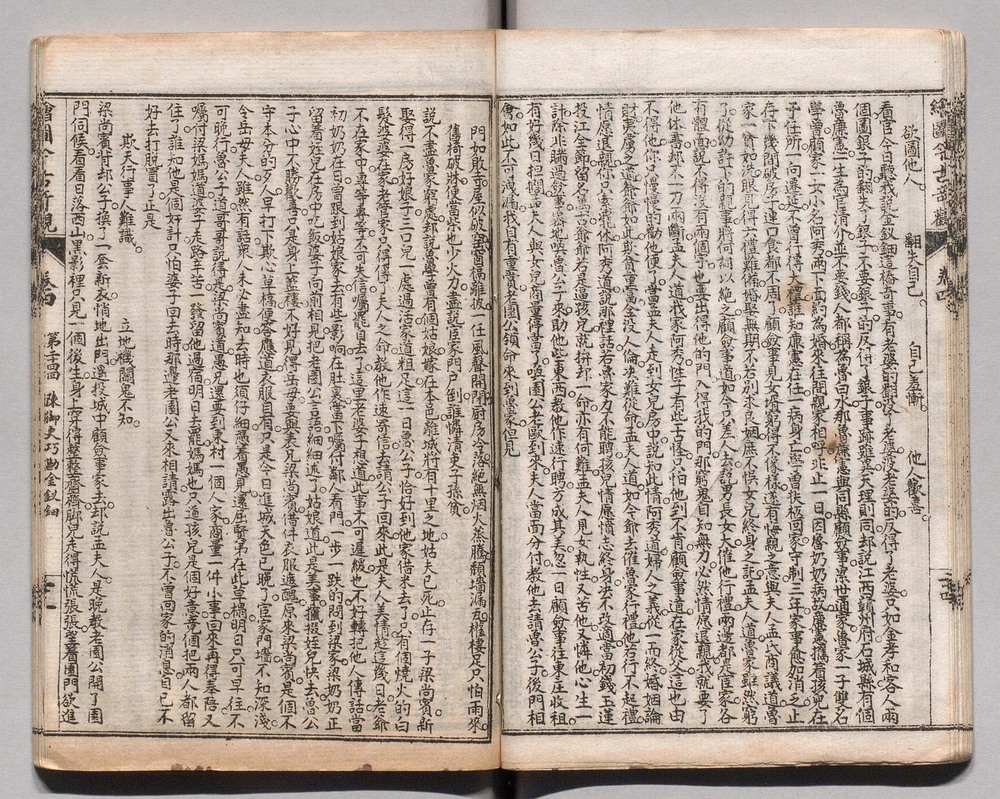 欲圖他人　翻失自己　自己羞慚　他人歡喜
看官今日聽我說金釵鈿這樁奇事有老婆的翻沒了老婆沒老婆的反得了老婆只如金孝和客人兩
個圖銀子的翻失了銀子不要銀子的反得了銀子事跡雖異天理則同却說江西贛州府石城縣有個
魯廉憲一生為官清介並不要錢人都稱為魯白水那魯廉憲與同縣顧僉事累世通家魯家一子雙名
學曾顧家一女小名阿秀兩下面約為婚來往間親家相呼非止一日因魯奶奶病故廉憲攜着孩兒在
于任所一向遷延不曾行得大禮誰知廉憲在任一病身亡學曾扶柩回家守制三年家事愈加消乏止
存下幾間破房子連口食都不周了顧僉事見女壻窮得不像樣遂有悔親之意與夫人孟氏商議道魯
家一貧如洗眼見得六禮難備婚娶無期不若別求良姻庶不悞女兒終身之託孟夫人道魯家雖然窮
了從幼許下的親事將何詞以絕之顧僉事道如今只差人去說男長女大催他行禮兩邊都是宦家各
有體面說不得沒有兩個字也要出得他的門入得我的門那窮鬼自知無力必然情愿退親我就要了
他休書却不一刀兩斷孟夫人道我家阿秀性子有些古怪只怕他到不肯顧僉事道在家從父這也由
不得他你只慢慢的勸他便了當下孟夫人走到女兒房中說知此情阿秀道婦人之義從一而終婚姻論
財夷虜之道爹爹如此欺貧重富全沒人倫決難從命孟夫人道如今爹去催魯家行禮他若行不起禮
情愿退親你只索罷休阿秀道說那裡話若魯家力不能聘孩兒情愿守志終身決不改適當初錢玉蓮
投江全節留名萬古爹爹若是逼孩兒就拚却一命亦有何難孟夫人見女執性又苦他又憐他心生一
計除非瞞過僉事密地喚魯公子來助他些東西教他作速行聘方成其美忽一日顧僉事往東庄收租
有好幾日担擱孟夫人與女兒商量停當了喚園公老歐到來夫人當面分付教他去請魯公子後門相
會如此如此不可洩漏我自有重賞老園公領命來到魯家但見
門如敗寺屋似破窰窗槅離披一任風聲開閉廚房冷落絕無烟火蒸騰頹墻漏瓦權棲足只怕雨來
舊椅破牀便當柴也少火力盡說宦家門戶倒誰憐清吏子孫貧
說不盡魯家窮處却說魯學曾有個姑娘嫁在本邑離城將有十里之地姑夫已死止存一子梁尚賓新
娶得一房好娘子三口兒一處過活家道粗足這一日魯公子恰好到他家借米去了只有個燒火的白
髮婆婆在家老管家只得傳了夫人之命教他作速寄信去請公子回來此是夫人美情趁這幾日老爺
不在家中專等專等不可失信囑罷自去了這里老婆子想道此事不可遲緩也不好轉托他人傳話當
初奶奶在日曾跟到姑娘家去有些影响在肚裏當下囑付鄰人看門一步一跌的問到梁家梁奶奶正
留着姪兒在房中吃飯婆子向前相見把老園公言語細細述了姑娘道此是美事攛掇姪兒快去魯公
子心中不勝歡喜只是身上藍縷不好見得岳母要與表兄梁尚賓借件衣服遮醜原來梁尚賓是個不
守本分的歹人早打下欺心草稿便答應道衣服自有只是今日進城天色已晚了宦家門墻不知深淺
令岳母夫人雖然有話眾人未必盡知去時也須仔細憑着愚見還屈賢弟在此草榻明日只可早往不
可晚行魯公子道哥哥說得是梁尚賓道愚兄還要到東村一個人家商量一件小事回來再得奉陪又
囑付梁媽媽道婆子走路辛苦一發留他過宿明日去罷媽媽也只道孩兒是個好意真個把兩人都留
住了誰知他是個奸計只怕婆子回去時那邊老園公又來相請露出魯公子不曾回家的消息自己不
好去打脫冒了正是
欺天行事人難識　立地機關鬼不知
梁尚賓背却公子換了一套新衣悄地出門逕投城中顧僉事家去却說孟夫人是晚教老園公開了園
門伺候看看日落西山黑影裡只見一個後生身上穿得整整齊齊脚兒走得慌慌張張望着園門欲進
繪圖今古奇觀　卷四　第二十四回　陳御史巧勘金釵鈿